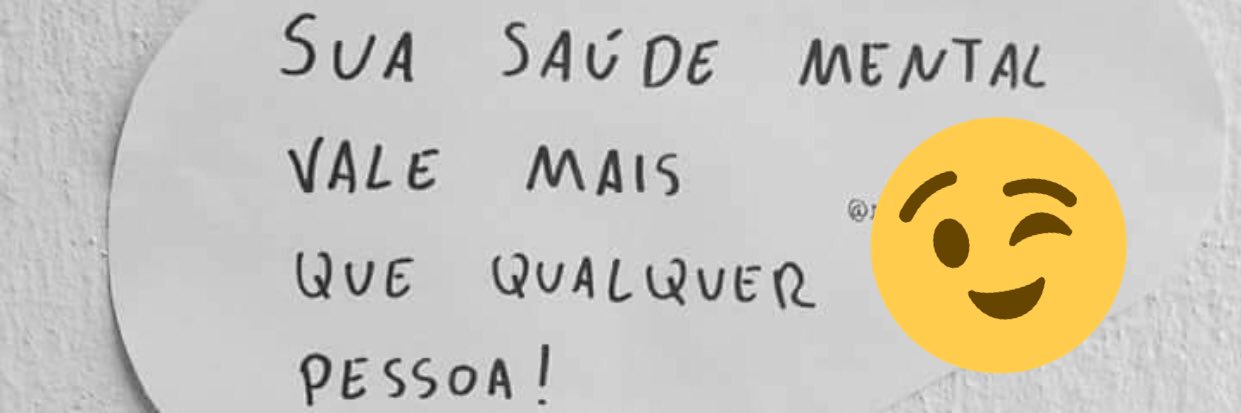 SUA SAÚDE MENTAL
VALE MAIS
QUE QUALQUER
PESSOA!